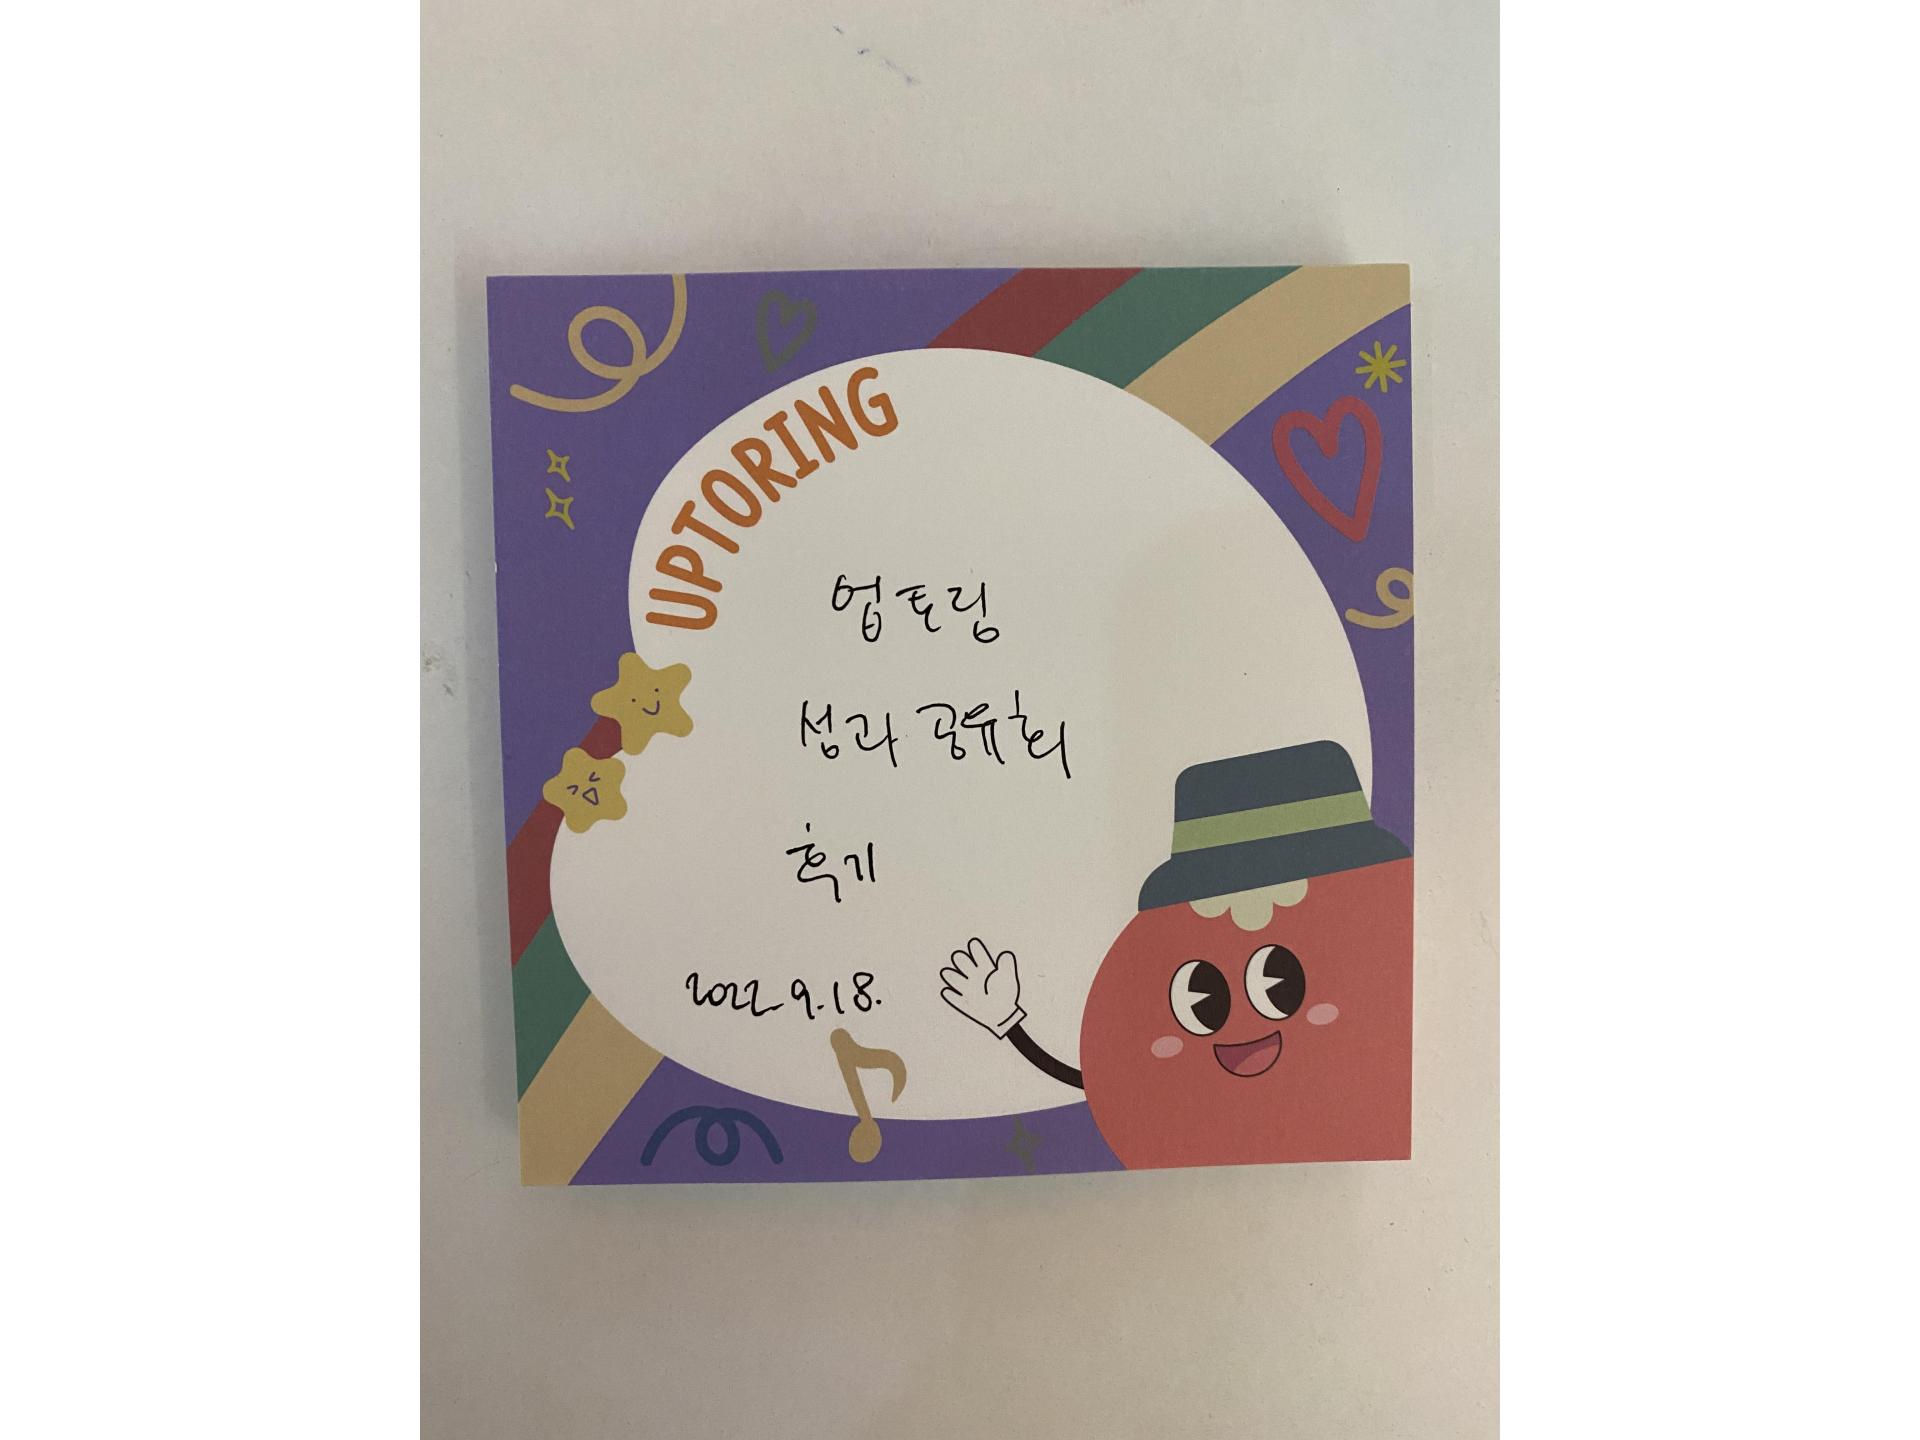 UPTORING
업토링
성과 공유회
후기
2022.9.18.